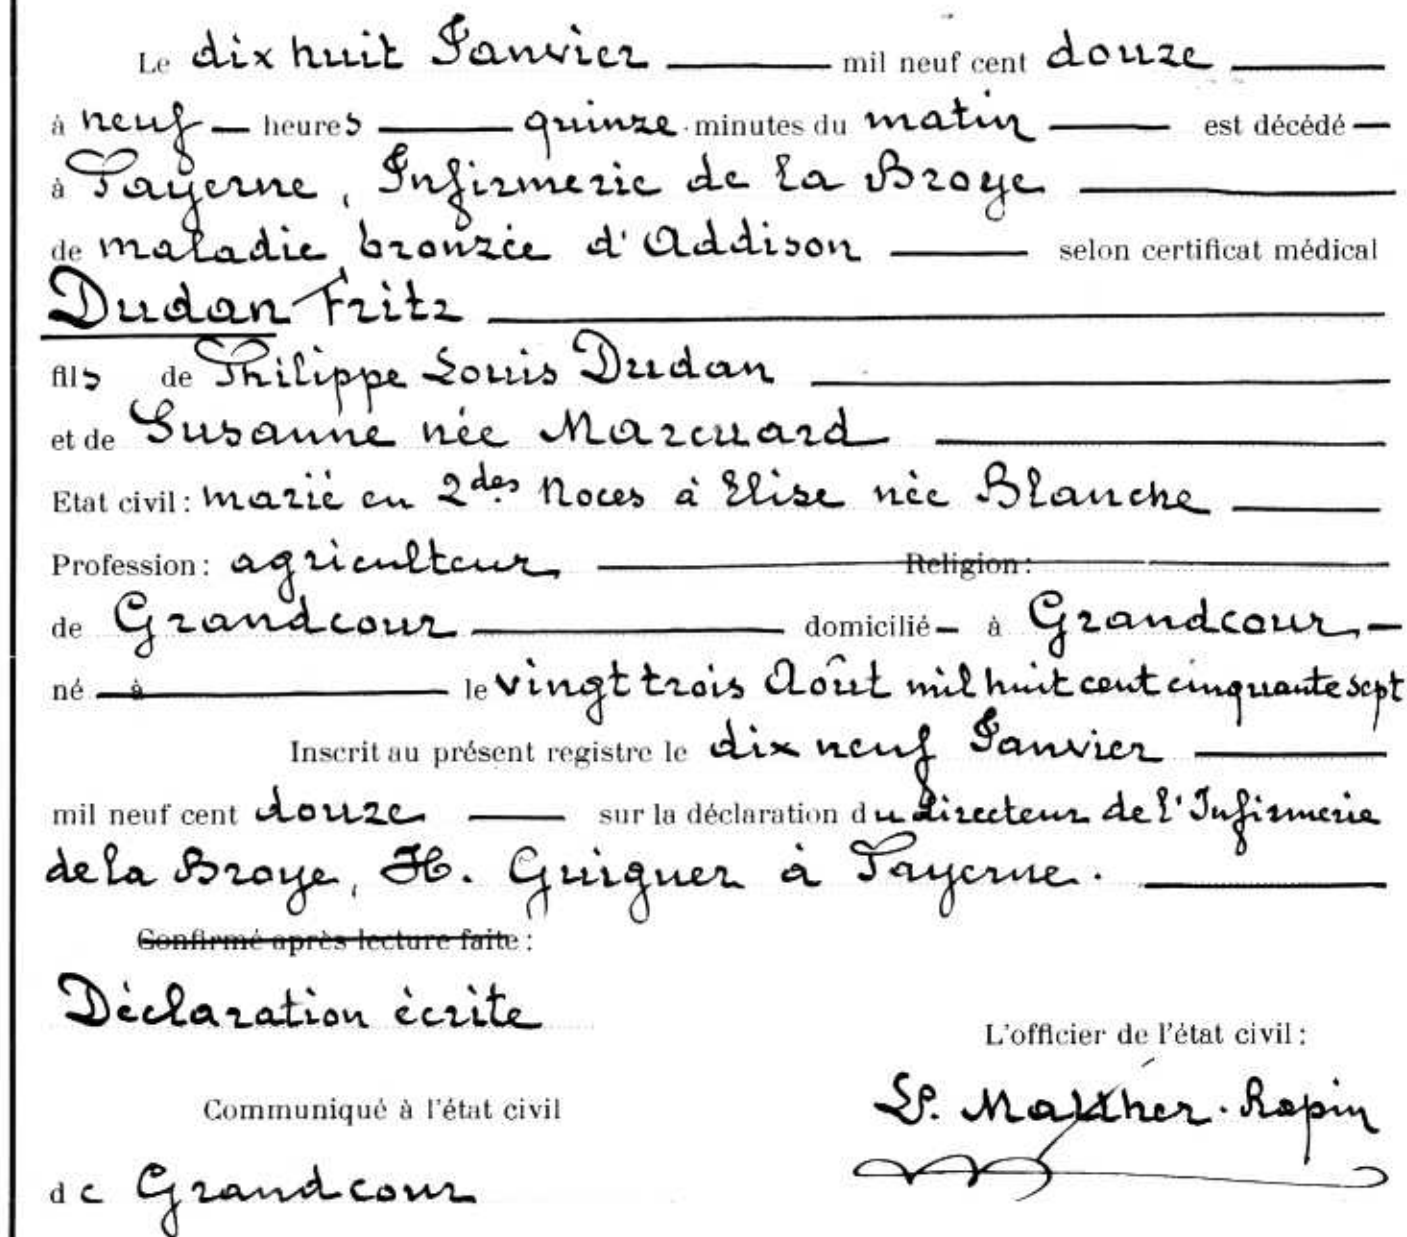 Le dix huit Janvier mil neuf cent douze
à neuf heures quinze minutes du matin est décédé
à Payerne, Infirmerie de la Broye
de maladie bronzée d'Addison selon certificat médical
Dudan Fritz
fils de Philippe Louis Dudan
et de Susanne née Marcuard
Etat civil : marié en 2des Noces à Elise née Blanche
Profession : agriculteur Religion :
de Grandcour domicilié à Grandcour
né à le vingt trois Août mil huit cent cinquante sept
Inscrit au présent registre le dix neuf Janvier
mil neuf cent douze sur la déclaration du directeur de l'Infirmerie
de la Broye, H. Guiguer à Payerne.
Confirmé après lecture faite :
Déclaration écrite
L'officier de l'état civil :
Communiqué à l'état civil
Rapin
de Grandcour